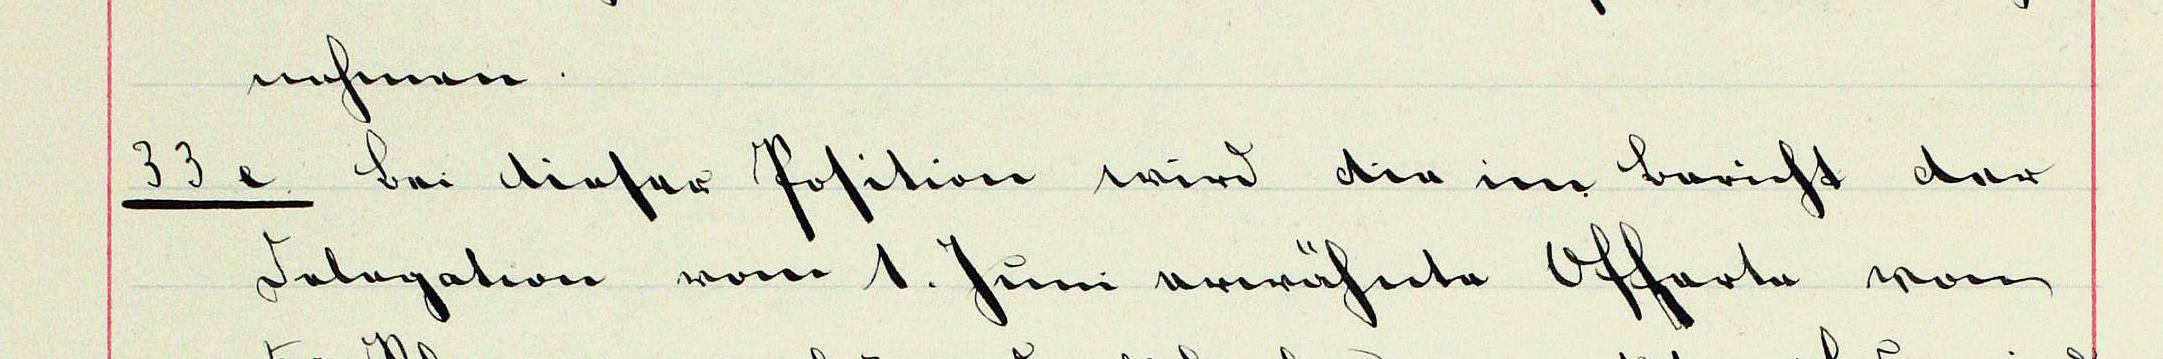 nehmen.
33 e. Bei dieser Position wird die im Bericht der
Delegation vom 1. Juni erwähnte Offerte von